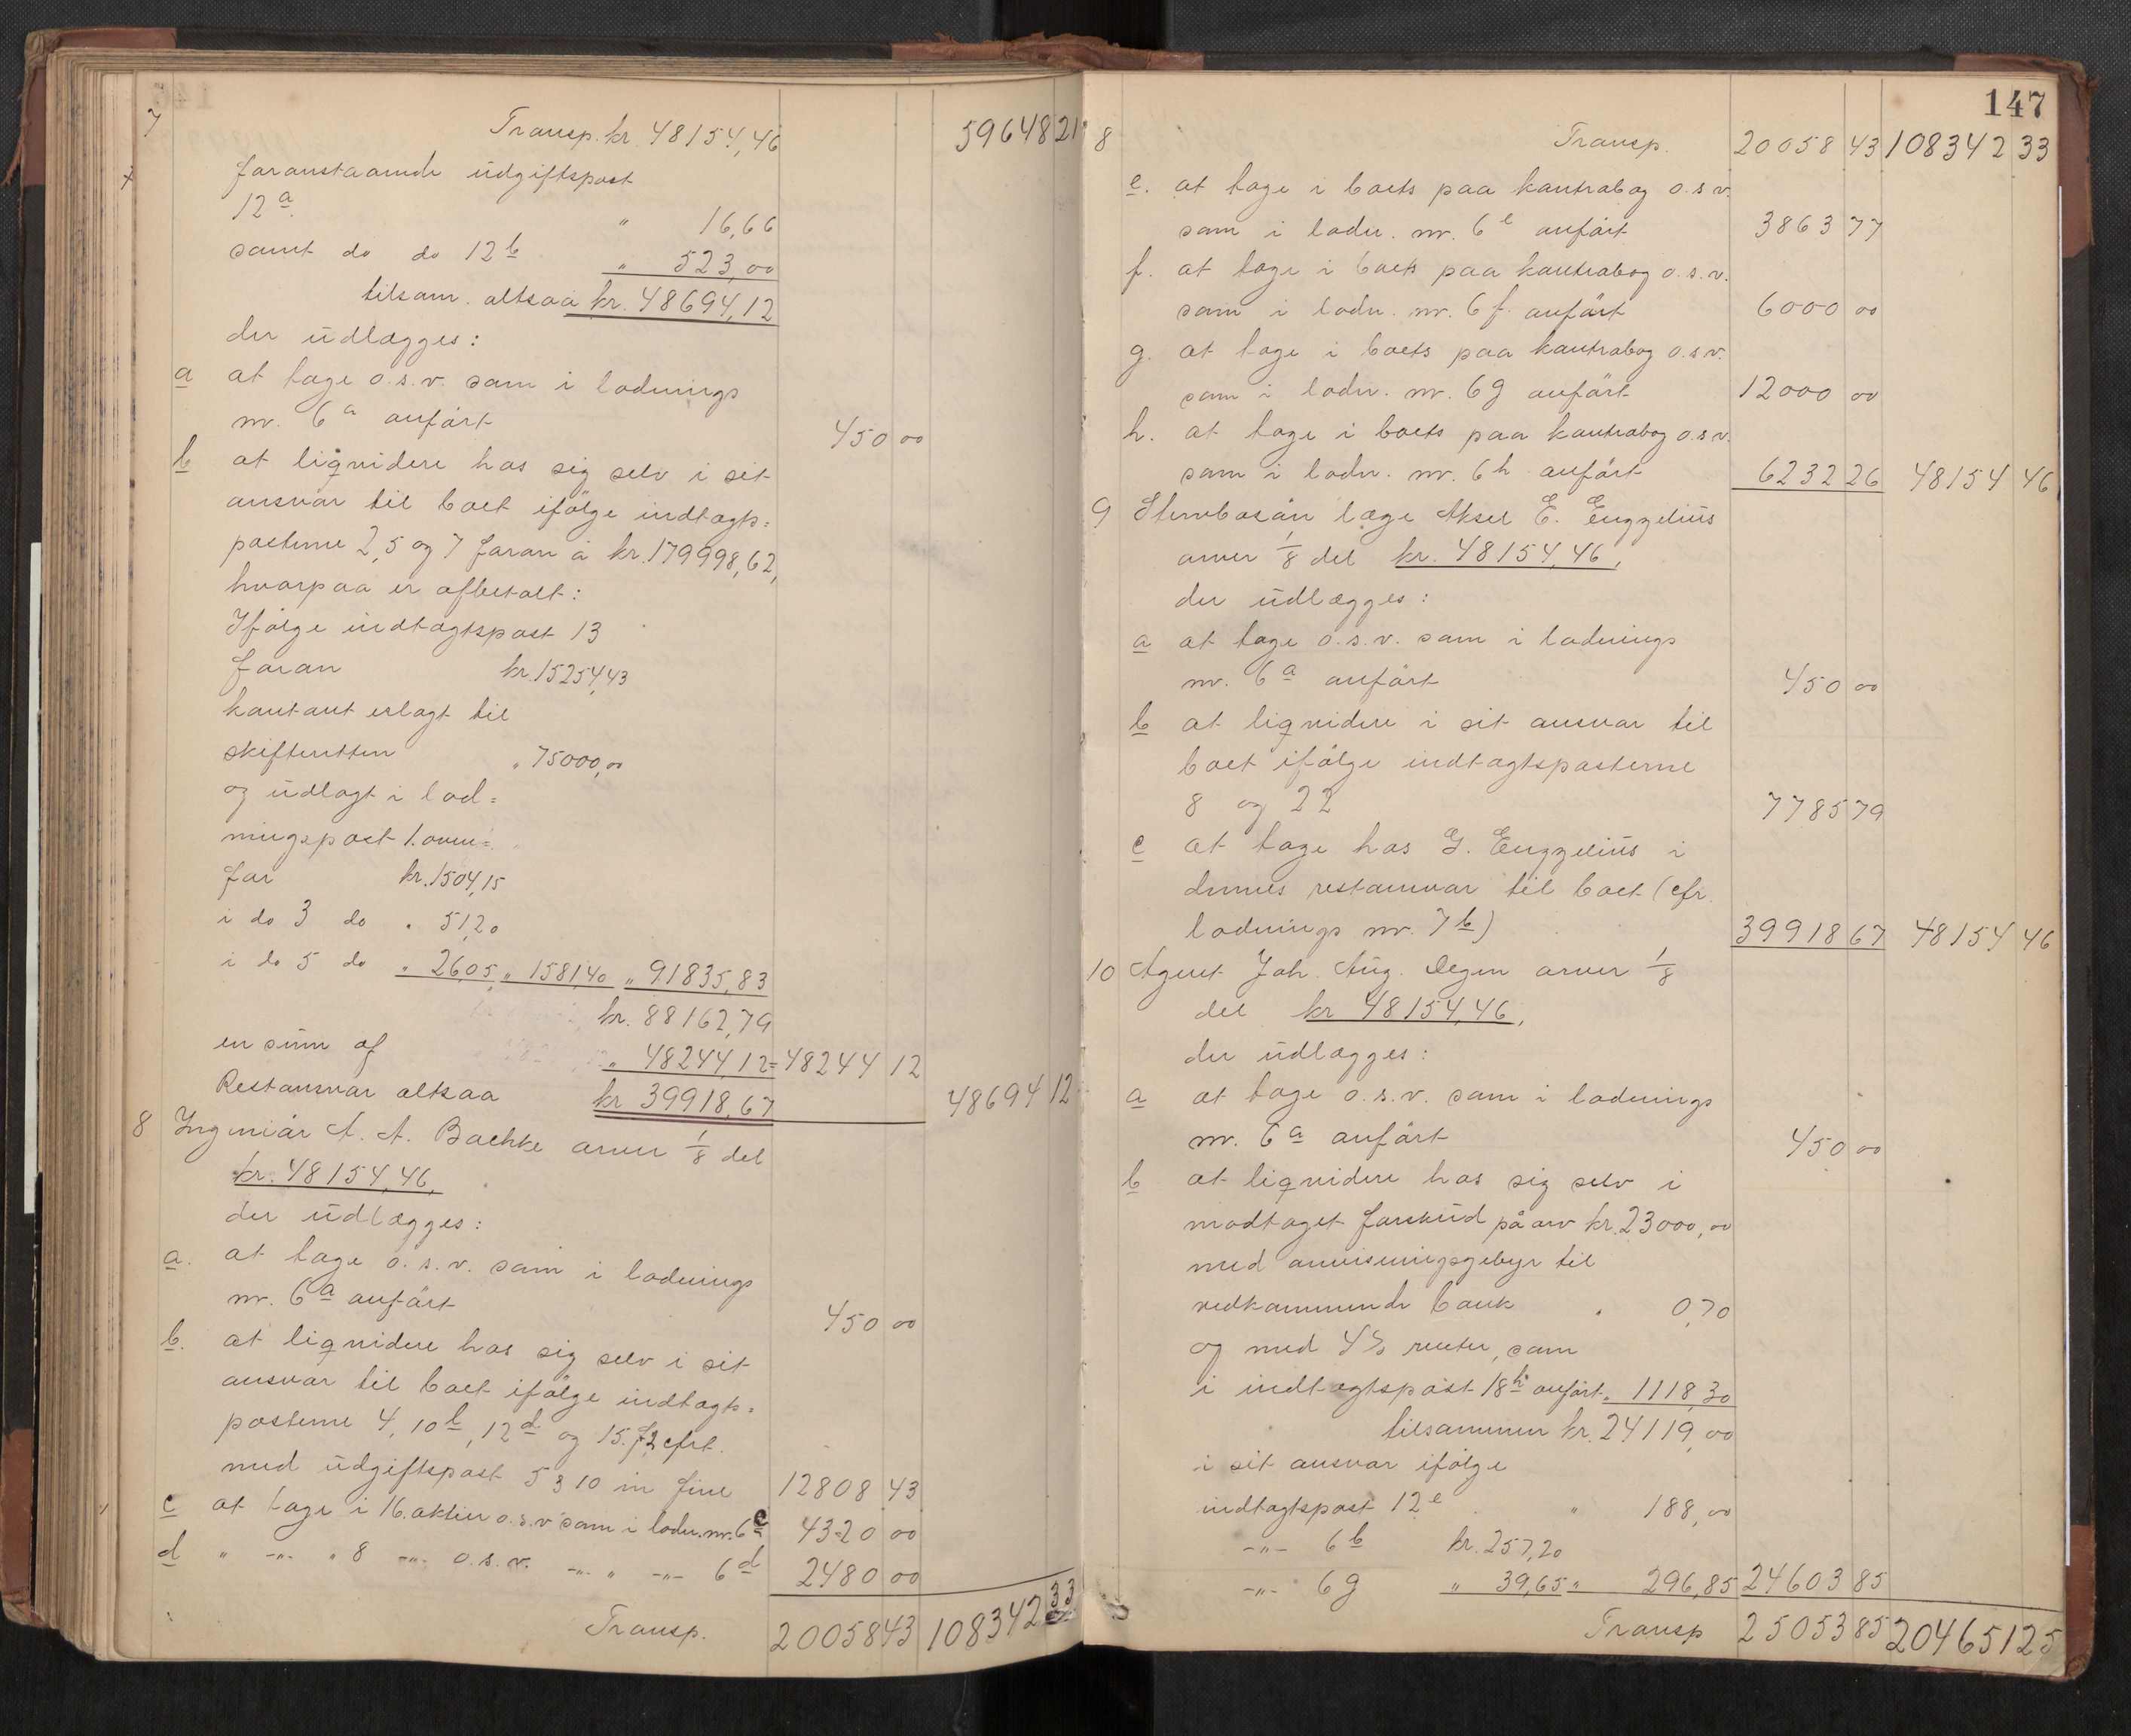 7 Transp. kr. 48154,46 59648 21
foranstaaende udgiftspost
12a " 16,66
samt do do 12b " 523,00
tilsam. altsaa kr. 48694,12
der udlægges:
a at tage o.s.v. som i lodnings
nr. 6a anført 450 00
b at liqvidere hos sig selv i sit
ansvar til boet ifølge indtægts=
posterne 2, 5 og 7 foran à kr. 179998,62,
hvorpaa er afbetalt:
Ifølge indtægtspost 13
foran kr. 15254,43
kontant erlagt til
skifteretten " 75000,00
og udlagt i lod=
ningspost 1. oven=
for kr. 1504,15
i do 3 do " 51,20
i do 5 do " 26,05 " 1581,40 " 91835,83
kr. 88162,79
en sum af " 48244,12 = 48244 12
Restansvar altsaa kr 39918,67 48694 12
8 Ingeniør A. A. Bachke arver 1/8 del
kr. 48154,46,
der udlægges:
a. at tage o.s.v. som i lodnings
nr. 6a anført 450 00
b. at liqvidere hos sig selv i sit
ansvar til boet ifølge indtægts=
posterne 4, 10b, 12d og 15. f2 cfrt.
med udgiftspost 5 3 10 in fine 12808 43
c at tage i 16. aktier o.s.v som i lodn. nr. 6c 4320 00
d " -"- " 8 -"- o.s.v. -"- " -"- 6d 2480 00
Transp. 20058 43 108342 33
147
8 Transp. 20058 43 108342 33
e. at tage i boets paa kontrabog o.s.v.
som i lodn. nr. 6e anført 3863 77
f. at tage i boets paa kontrabog o.s.v.
som i lodn. nr. 6f. anført 6000 00
g. at tage i boets paa kontrabog o.s.v.
som i lodn. nr. 6g anført 12000 00
h. at tage i boets paa kontrabog o.s.v.
som i lodn. nr. 6h anført 6232 26 48154 46
9 Stervbosøn læge Aksel E. Engzelius
arver 1/8 del kr. 48154,46,
der udlægges:
a at tage o.s.v. som i lodnings
nr. 6a anført 450 00
b at liqvidere i sit ansvar til
boet ifølge indtægtsposterne
8 og 22 7785 79
c at tage hos G. Engzelius i
dennes restansvar til boet (cfr.
lodnings nr. 7b) 39918 67 48154 46
10 Agent Joh. Aug. Degen arver 1/8
del kr 48154,46,
der udlægges:
a at tage o.s.v. som i lodnings
nr. 6a anført 450 00
b at liqvidere hos sig selv i
modtaget forskud på arv kr. 23000,00
med anvisningsgebyr til
vedkommende bank " 0,70
og med 4% renter, som
i indtægtspost 18h anført " 1118,30
tilsammen kr. 24119,00
i sit ansvar ifølge
indtægtspost 12e " 188,00
-"- 6b kr. 257,20
-"- 6g " 39,65 " 296,85 24603 85
Transp 25053 85 204651 25